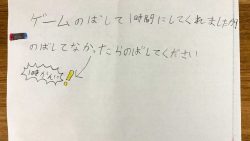 ゲームのばして1時間にしてくれましたか
のばしてなかったらのばしてください
1時かんいじょう!